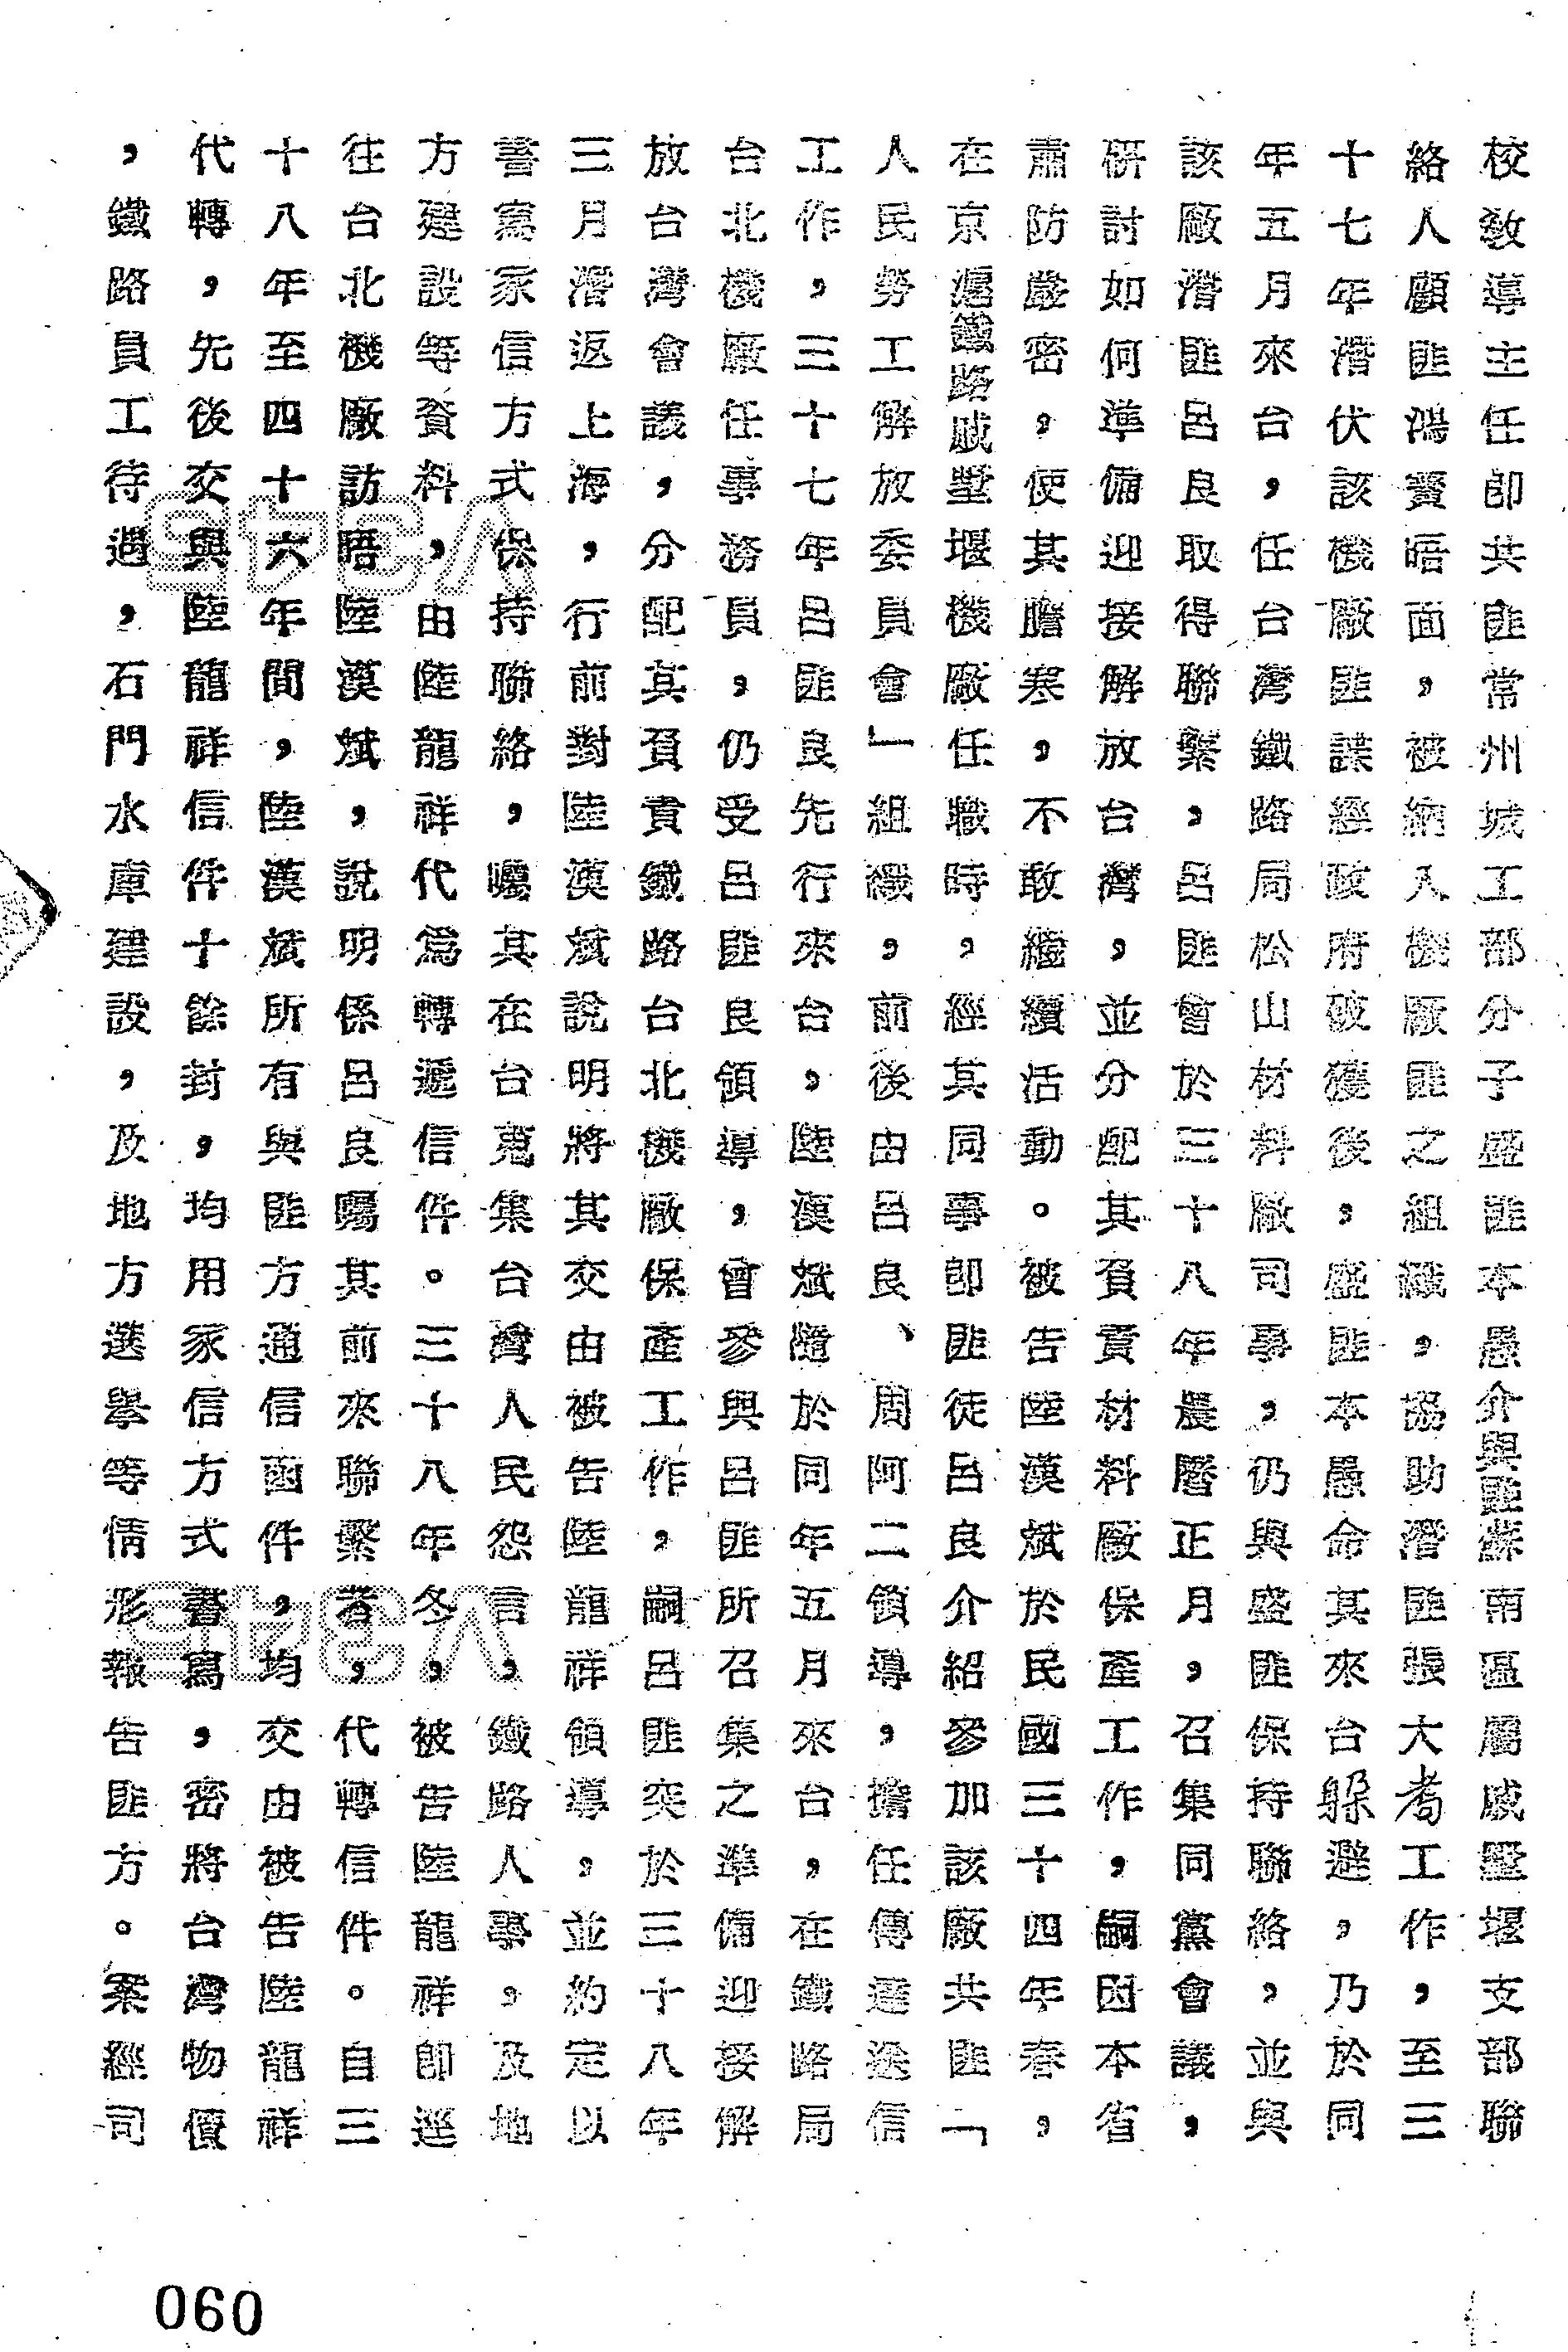 校敎導主任卽共匪常州城工部分子盛匪本愚介與匪蘇南區屬戚墅堰支部聯
絡人顧匪鴻賓晤面，被納入機廠匪之組織，協助潛匪張大為工作，至三
十七年潛伏該機廠匪諜經政府破獲後，盛匪本愚命其來台躲避，乃於同
年五月來台，任台灣鐵路局松山材料廠司事，仍與盛匪保持聯絡，並與
該廠潛匪呂良，取得聯繫，呂匪曾於三十八年農曆正月，召集同黨會議，
研討如何準備迎接解放台灣，並分配其負責材料廠保產工作，嗣因本省
肅防嚴密，使其膽寒，不敢繼續活動。被告陸漢斌於民國三十四年春，
在京滬鐵路戚墅堰機廠任職時，經其同事卽匪徒呂良介紹參加該廠共匪「
人民勞工解放委員會」組織，前後由呂良、周阿二領導，擔任傳遞送信
工作，三十七年呂匪良先行來台，陸漢斌隨於同年五月來台，在鐵路局
台北機廠任事務員，仍受呂匪良領導，曾參與呂匪所召集之準備迎接解
放台灣會議，分配其負責鐵路台北機廠保產工作，嗣呂匪突於三十八年
三月潛返上海，行前對陸漢斌說明將其交由被告陸龍祥領導，並約定以
書寫家信方式保持聯絡，囑其在台蒐集台灣人民怨言，鐵路人事，及地
方建設等資料，由陸龍祥代為轉遞信件。三十八年冬，被告陸龍祥卽逕
往台北機廠訪晤陸漢斌，說明係呂良囑其前來聯繫者，代轉信件。自三
十八年至四十六年間，陸漢斌所有與匪方通信函件，均交由被告陸龍祥
代轉，先後交與陸龍祥信件十餘封，均用家信方式書寫，密將台灣物價
，鐵路員工待遇，石門水庫建設，及地方選舉等情形報告匪方。案經司
060